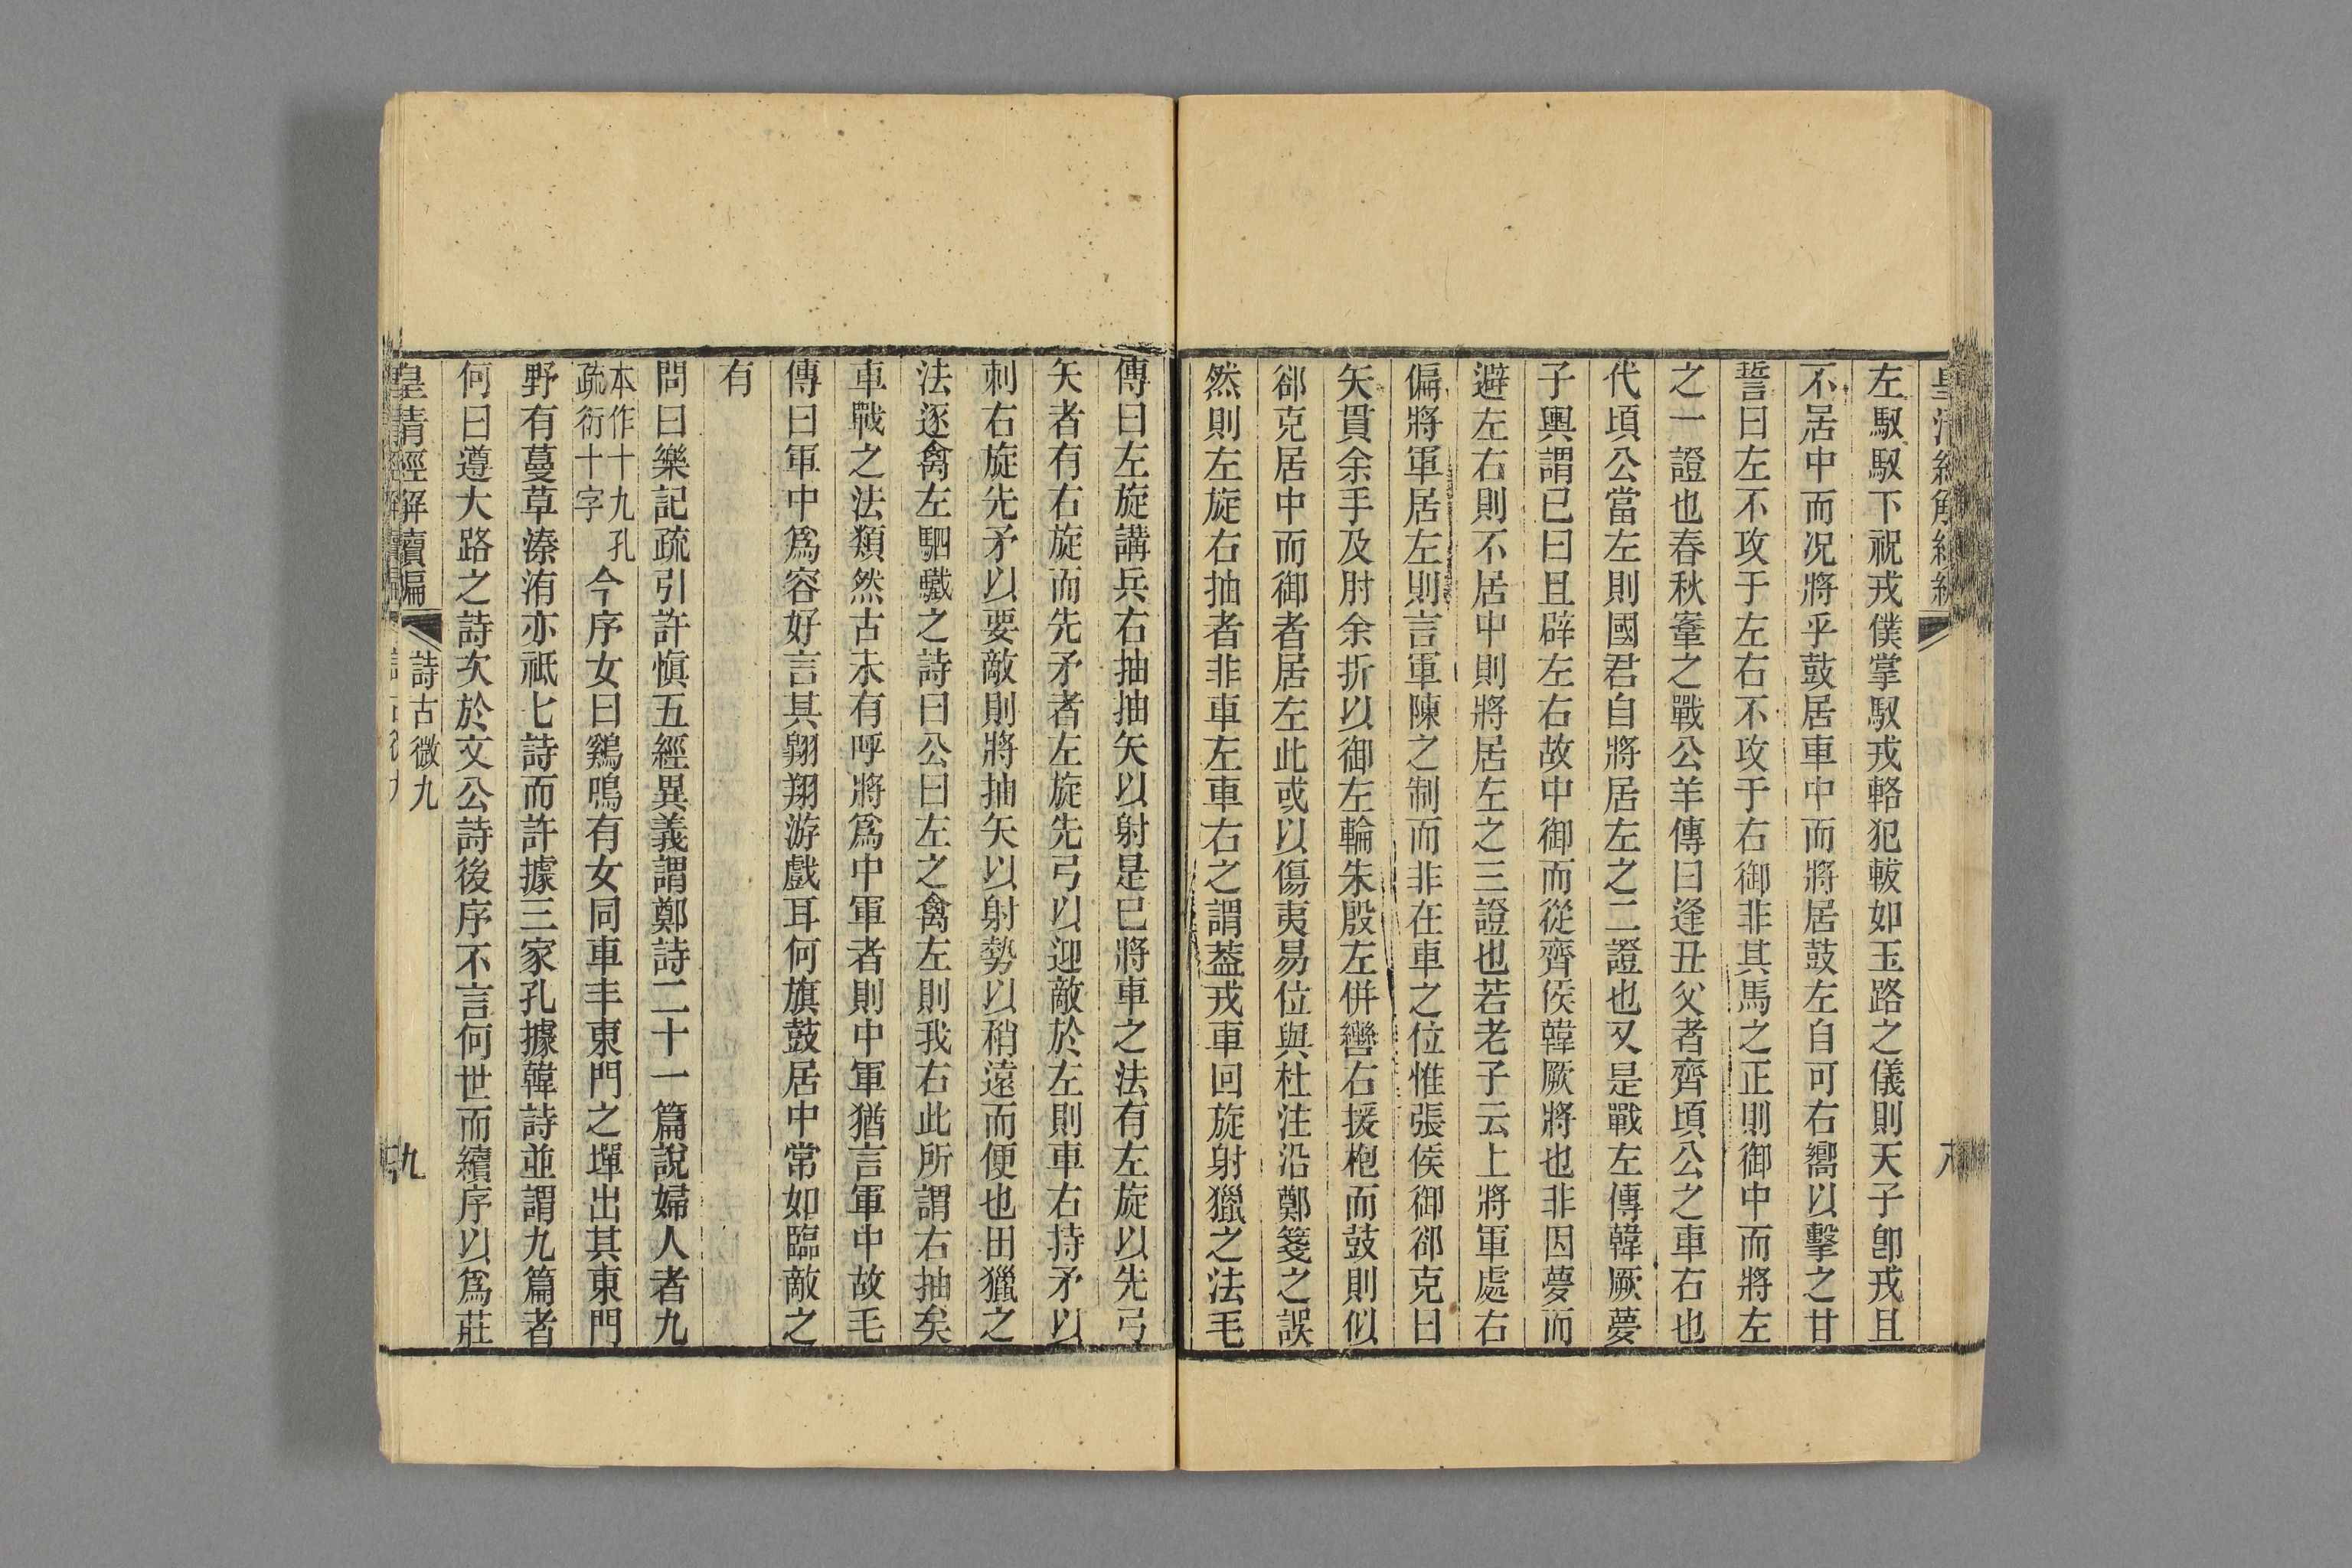 左馭馭下祝戎僕掌馭戎輅犯軷如玉路之儀則天子卽戎且
不居中而况將乎鼓居車中而將居鼓左自可右嚮以擊之甘
誓曰左不攻于左右不攻于右御非其馬之正則御中而將左
之一證也春秋鞌之戰公羊傳曰逢丑父者齊頃公之車右也
代頃公當左則國君自將居左之二證也又是戰左傳韓厥夢
子輿謂已曰且辟左右故中御而從齊侯韓厥將也非因夢而
避左右則不居中則將居左之三證也若老子云上將軍處右
偏將軍居左則言軍陳之制而非在車之位惟張侯御郤克曰
矢貫余手及肘余折以御左輪朱殷左併轡右援枹而鼓則似
郤克居中而御者居左此或以傷夷易位與杜注沿鄭箋之誤
然則左旋右抽者非車左車右之謂葢戎車回旋射獵之法毛
傳曰左旋講兵右抽抽矢以射是巳將車之法有左旋以先弓
矢者有右旋而先矛者左旋先弓以迎敵於左則車右持矛以
刺右旋先矛以要敵則將抽矢以射勢以稍遠而便也田獵之
法逐禽左駟驖之詩曰公曰左之禽左則我右此所謂右抽矣
車戰之法類然古未有呼將爲中軍者則中軍猶言軍中故毛
傳曰軍中爲容好言其翺翔游戲耳何旗鼓居中常如臨敵之
有
問曰樂記疏引許愼五經異義謂鄭詩二十一篇說婦人者九
本作十九孔
疏衍十字
今序女曰鷄鳴有女同車丰東門之墠出其東門
野有蔓草溱洧亦祇七詩而許據三家孔據韓詩並謂九篇者
何曰遵大路之詩次於文公詩後序不言何世而續序以爲莊
皇清經解續編
詩古微九
九